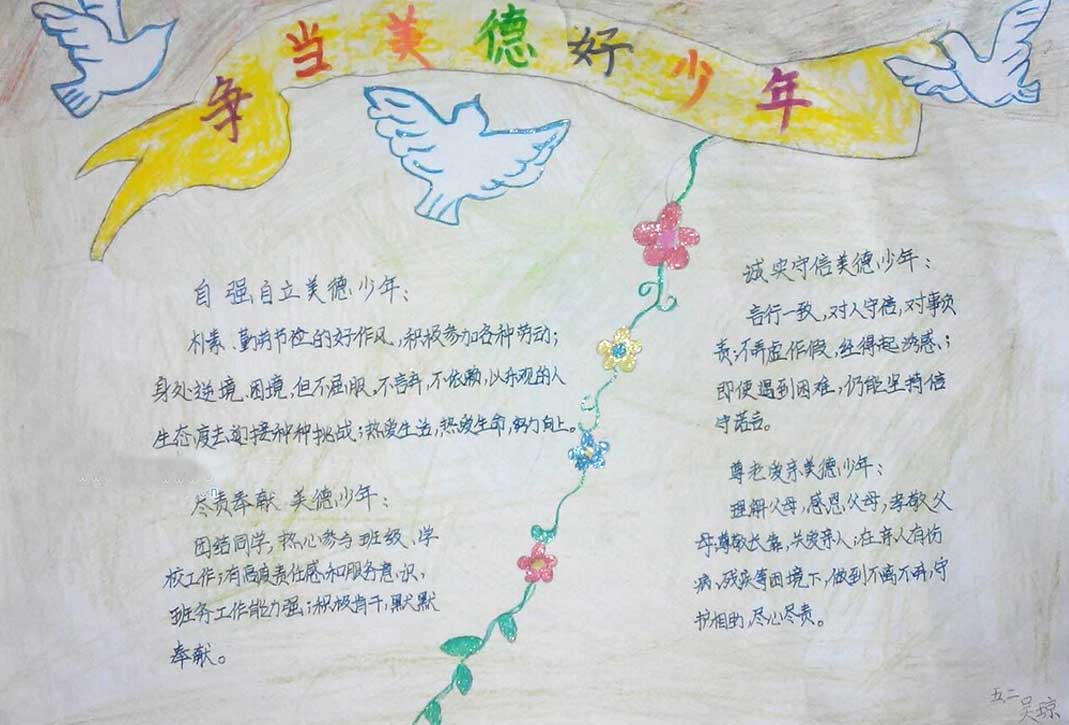 争当美德好少年
自强自立美德少年：
朴素、勤劳节俭的好作风，积极参加各种劳动；
身处逆境、困境，但不屈服，不言弃，不依赖，以乐观的人
生态度去迎接种种挑战；热爱生活，热爱生命，努力向上。
尽责奉献 美德少年：
团结同学，热心参与班级、学
校工作；有高度责任感和服务意识，
班务工作能力强；积极肯干，默默
奉献。
诚实守信美德少年：
言行一致，对人守信，对事负
责；不弄虚作假，经得起诱惑；
即使遇到困难，仍能坚持信
守诺言。
尊老爱亲美德少年：
理解父母，感恩父母，孝敬父
母尊敬长辈，关爱亲人；在亲人有伤
病、残疾等困境下，做到不离不弃，守
护相助，尽心尽责。
五.二
吴琼